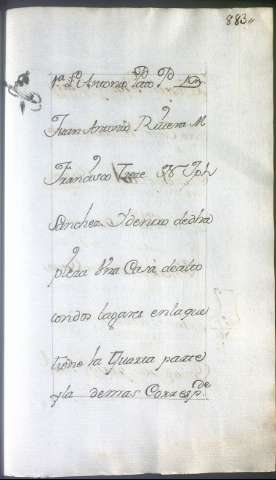 883
Antonio Pato P
Juan Antonio Rivera M
Francisco
Sanchez Y dentro de dha
pieza Vna Casa de alto
con dos lagares en la que
tiene la Quarta parte
y la demas Corresp.de